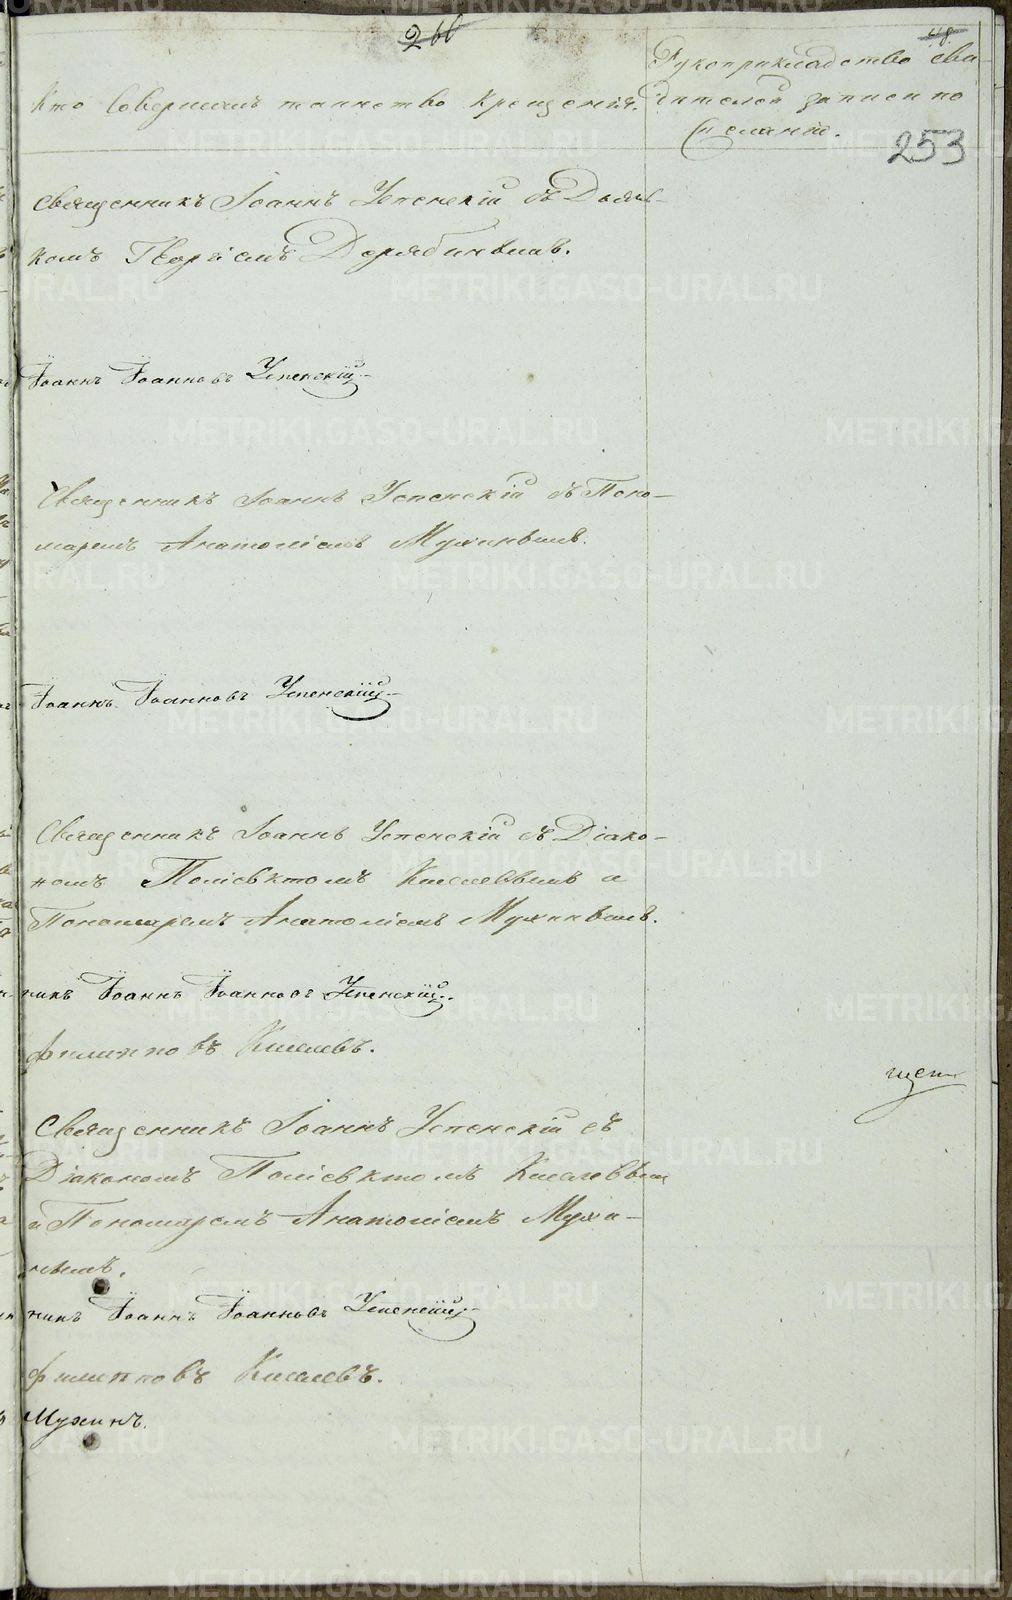 266
48.
Рукоприкладство сви-
Кто совершалъ таинство крещенія.
дѣтелей записи по
желанію.
253
Священникъ Іоаннъ Успенскій съ Дьяч-
комъ Георгіемъ Дерябинымъ.
Іоаннъ Іоанновъ Успенскій
Священникъ Іоаннъ Успенскій съ Поно-
маремъ Анатоліемъ Мухинымъ.
Іоаннъ Іоанновъ Успенскій
Священникъ Іоаннъ Успенскій съ Діако-
номъ Поліевктомъ Киселевымъ и
Пономаремъ Анатоліемъ Мухинымъ.
никъ Іоаннъ Іоанновъ Успенскій
Филипповъ Киселевъ.
Священникъ Іоаннъ Успенскій съ
Діакономъ Поліевктомъ Киселевым
и Пономаремъ Анатоліемъ Мухи-
нымъ.
никъ Іоаннъ Іоанновъ Успенскій
Филипповъ Киселевъ.
Мухинъ.
METRIKI.GASO-URAL.RU